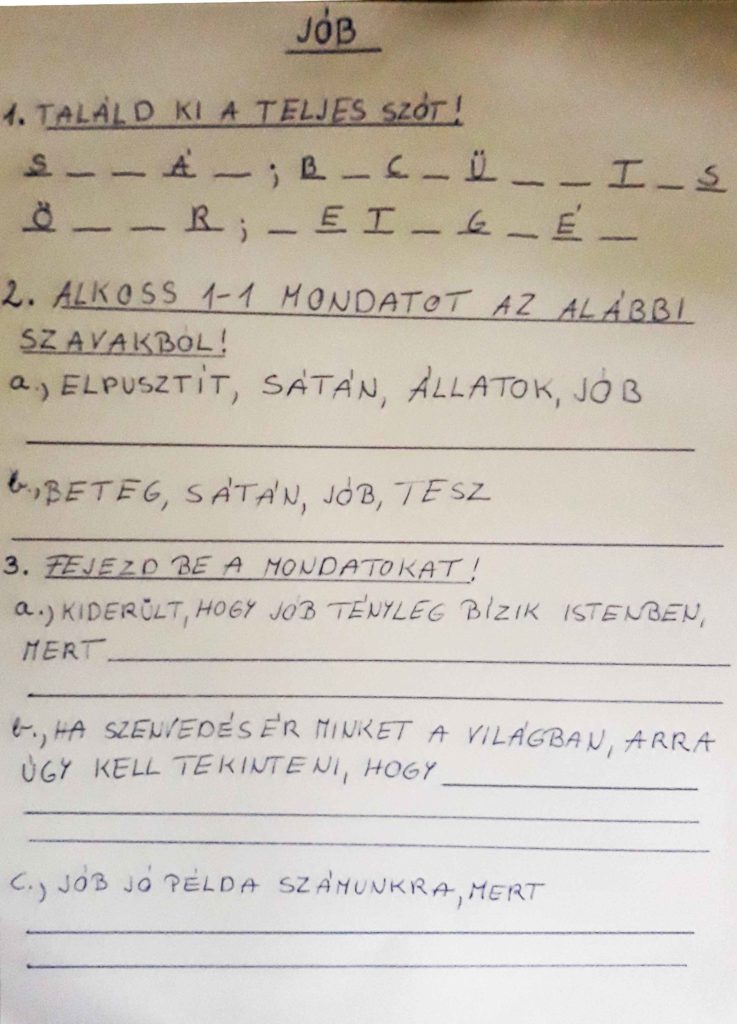 JÓB
1. TALÁLD KI A TELJES SZÓT!
S _ _ Á _ ; B _ C _ Ü _ _ T _ S
Ö _ _ R ; _ E T _ G _ É _
2. ALKOSS 1-1 MONDATOT AZ ALÁBBI
SZAVAKBÓL!
a., ELPUSZTÍT, SÁTÁN, ÁLLATOK, JÓB
b., BETEG, SÁTÁN, JÓB, TESZ
3. FEJEZD BE A MONDATOKAT!
a.) KIDERÜLT, HOGY JÓB TÉNYLEG BÍZIK ISTENBEN,
MERT
b., HA SZENVEDÉS ÉR MINKET A VILÁGBAN, ARRA
ÚGY KELL TEKINTENI, HOGY
C., JÓB JÓ PÉLDA SZÁMUNKRA, MERT